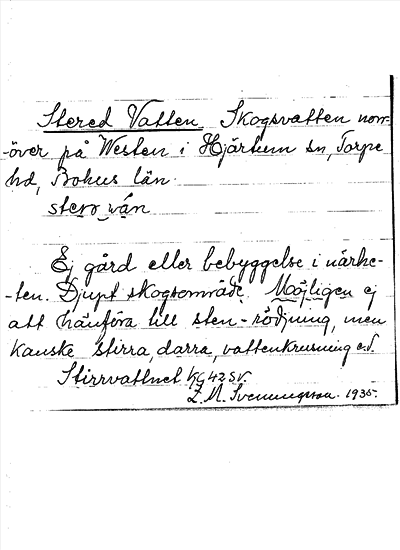 Stered Vatten Skogsvatten norr-
-över på Westen i Hjärtum sn, Torpe
hd, Bohus län.
stero ván
Ej gård eller bebyggelse i närhe-
-ten. Djupt skogsområde. Möjligen ej
att hänföra till sten-rödjning, men
kanske stirra, darra, vattenkrusning
Stirrvattnet KG42SV.
Z. M. Svenningson. 1935.